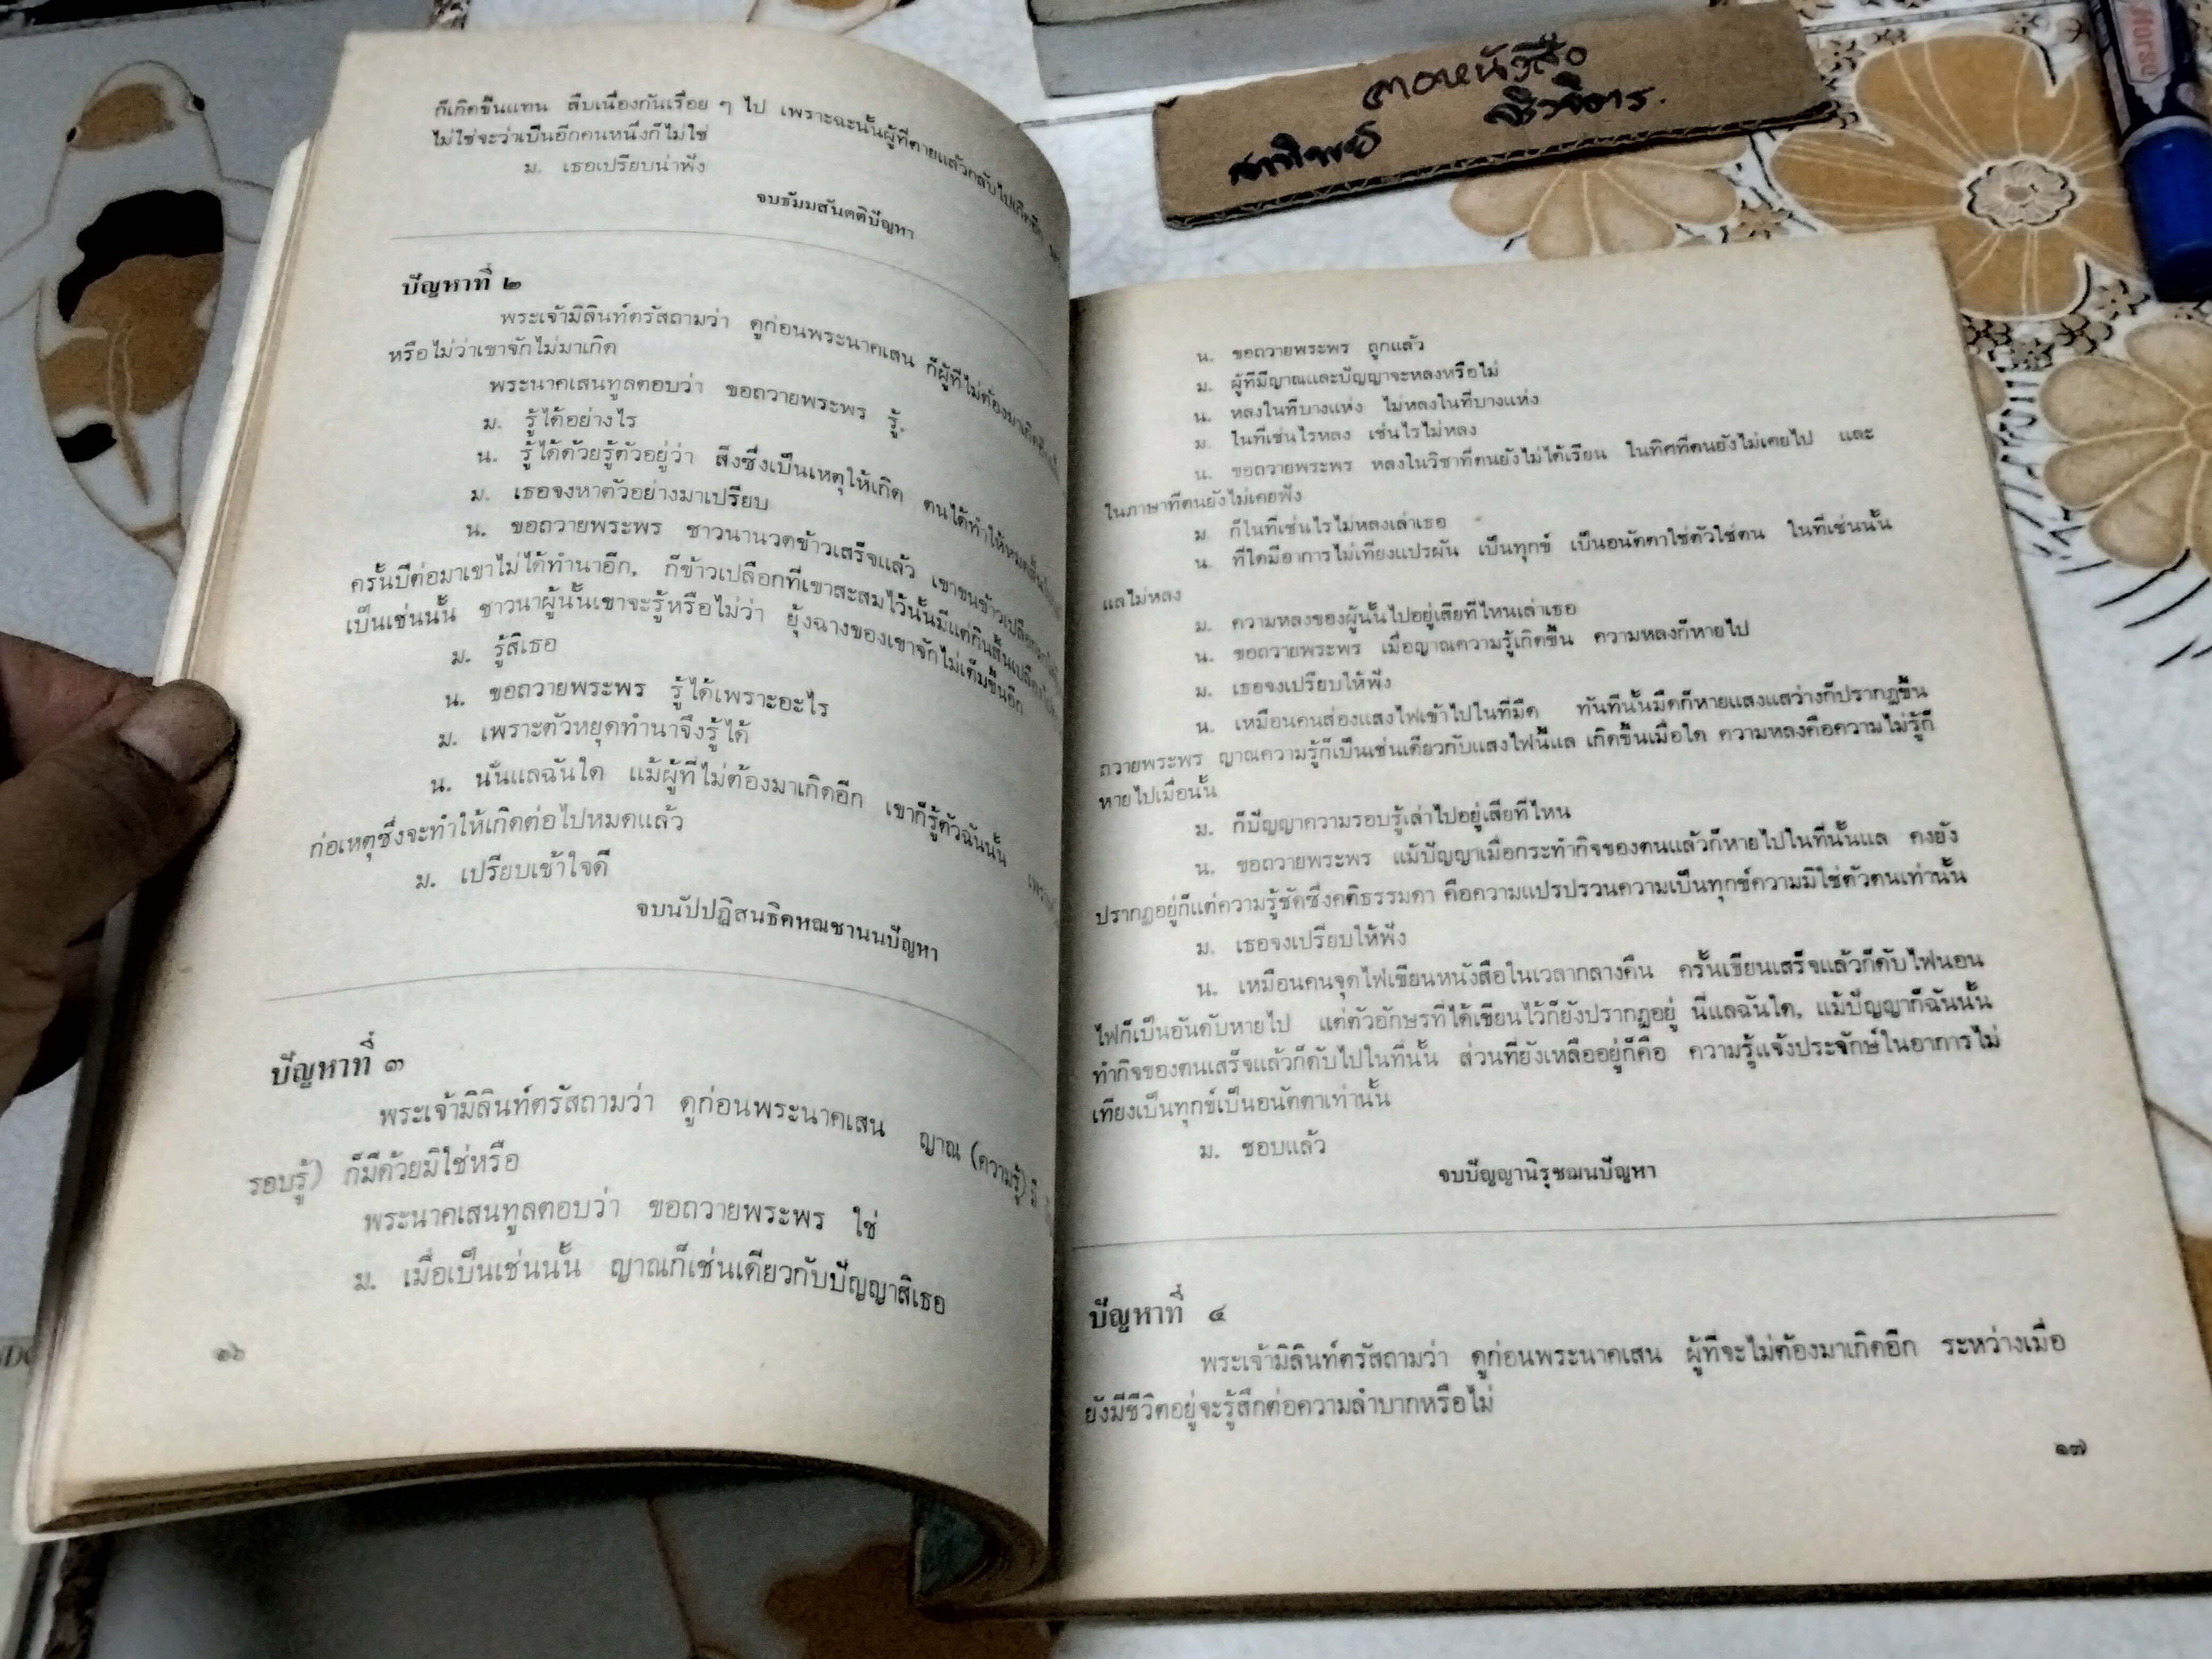 ก็เกิดขึ้นแทน สืบเนื่องกันเรื่อย ๆ ไป เพราะฉะนั้นผู้ที่ตายแล้วกลับไปเกิดอีก
ไม่ใช่จะว่าเป็นอีกคนหนึ่งก็ไม่ใช่
ม. เธอเปรียบน่าฟัง
จบธัมมสันตติปัญหา
ปัญหาที่ ๒
พระเจ้ามิลินท์ตรัสถามว่า ดูก่อนพระนาคเสน ก็ผู้ที่ไม่ต้องมาเกิดอีก
หรือไม่ว่าเขาจักไม่มาเกิด
พระนาคเสนทูลตอบว่า ขอถวายพระพร รู้.
ม. รู้ได้อย่างไร
น. รู้ได้ด้วยรู้ตัวอยู่ว่า สิ่งซึ่งเป็นเหตุให้เกิด ตนได้ทำให้หมดสิ้น
ม. เธอจงหาตัวอย่างมาเปรียบ
น. ขอถวายพระพร ชาวนานวดข้าวเสร็จแล้ว เขาขนข้าวเปลือก
ครั้นปีต่อมาเขาไม่ได้ทำนาอีก, ก็ข้าวเปลือกที่เขาสะสมไว้นั้นมีแต่กินสิ้นเปลือง
เป็นเช่นนั้น ชาวนาผู้นั้นเขาจะรู้หรือไม่ว่า ยุ้งฉางของเขาจักไม่เต็มขึ้นอีก
ม. รู้สิเธอ
น. ขอถวายพระพร รู้ได้เพราะอะไร
ม. เพราะตัวหยุดทำนาจึงรู้ได้
น. นั่นแลฉันใด แม้ผู้ที่ไม่ต้องมาเกิดอีก เขาก็รู้ตัวฉันนั้น
ก่อเหตุซึ่งจะทำให้เกิดต่อไปหมดแล้ว
ม. เปรียบเข้าใจดี
จบนัปปฏิสนธิคหณชานนปัญหา
ปัญหาที่ ๓
พระเจ้ามิลินท์ตรัสถามว่า ดูก่อนพระนาคเสน ญาณ (ความรู้) มี
รอบรู้) ก็มีด้วยมิใช่หรือ
พระนาคเสนทูลตอบว่า ขอถวายพระพร ใช่
ม. เมื่อเป็นเช่นนั้น ญาณก็เช่นเดียวกับปัญญาสิเธอ
๑๖
น. ขอถวายพระพร ถูกแล้ว
ม. ผู้ที่มีญาณและปัญญาจะหลงหรือไม่
น. หลงในที่บางแห่ง ไม่หลงในที่บางแห่ง
ม. ในที่เช่นไรหลง เช่นไรไม่หลง
น. ขอถวายพระพร หลงในวิชาที่ตนยังไม่ได้เรียน ในทิศที่ตนยังไม่เคยไป และ
ในภาษาที่ตนยังไม่เคยฟัง
ม. ก็ในที่เช่นไรไม่หลงเล่าเธอ
น. ที่ใดมีอาการไม่เที่ยงแปรผัน เป็นทุกข์ เป็นอนัตตาใช่ตัวใช่ตน ในที่เช่นนั้น
แลไม่หลง
ม. ความหลงของผู้นั้นไปอยู่เสียที่ไหนเล่าเธอ
น. ขอถวายพระพร เมื่อญาณความรู้เกิดขึ้น ความหลงก็หายไป
ม. เธอจงเปรียบให้ฟัง
น. เหมือนคนส่องแสงไฟเข้าไปในที่มืด ทันทีนั้นมืดก็หายแสงแสว่างก็ปรากฏขึ้น
ถวายพระพร ญาณความรู้ก็เป็นเช่นเดียวกับแสงไฟนี้แล เกิดขึ้นเมื่อใด ความหลงคือความไม่รู้ก็
หายไปเมื่อนั้น
ม. ก็ปัญญาความรอบรู้เล่าไปอยู่เสียที่ไหน
น. ขอถวายพระพร แม้ปัญญาเมื่อกระทำกิจของตนแล้วก็หายไปในที่นั้นแล คงยัง
ปรากฏอยู่ก็แต่ความรู้ชัดซึ่งคติธรรมดา คือความแปรปรวนความเป็นทุกข์ความมิใช่ตัวตนเท่านั้น
ม. เธอจงเปรียบให้ฟัง
น. เหมือนคนจุดไฟเขียนหนังสือในเวลากลางคืน ครั้นเขียนเสร็จแล้วก็ดับไฟนอน
ไฟก็เป็นอันดับหายไป แต่ตัวอักษรที่ได้เขียนไว้ก็ยังปรากฏอยู่ นี่แลฉันใด, แม้ปัญญาก็ฉันนั้น
ทำกิจของตนเสร็จแล้วก็ดับไปในที่นั้น ส่วนที่ยังเหลืออยู่ก็คือ ความรู้แจ้งประจักษ์ในอาการไม่
เที่ยงเป็นทุกข์เป็นอนัตตาเท่านั้น
ม. ชอบแล้ว
จบปัญญานิรุชฌนปัญหา
ปัญหาที่ ๔
พระเจ้ามิลินท์ตรัสถามว่า ดูก่อนพระนาคเสน ผู้ที่จะไม่ต้องมาเกิดอีก ระหว่างเมื่อ
ยังมีชีวิตอยู่จะรู้สึกต่อความลำบากหรือไม่
๑๗
Horse